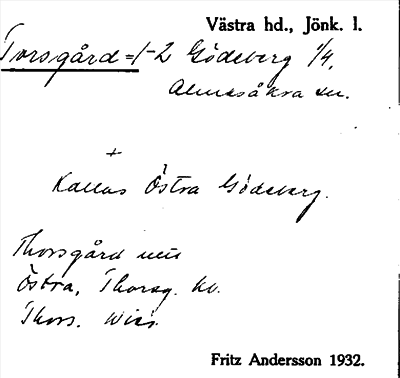 Västra hd., Jönk. l.
Torsgård = 1-2 Gödeberg 1/4,
Almesåkra sn.
+
Kallas Östra Gödeberg.
Thorsgård
Östra, Thorsg. kv.
Thors. Wies.
Fritz Andersson 1932.